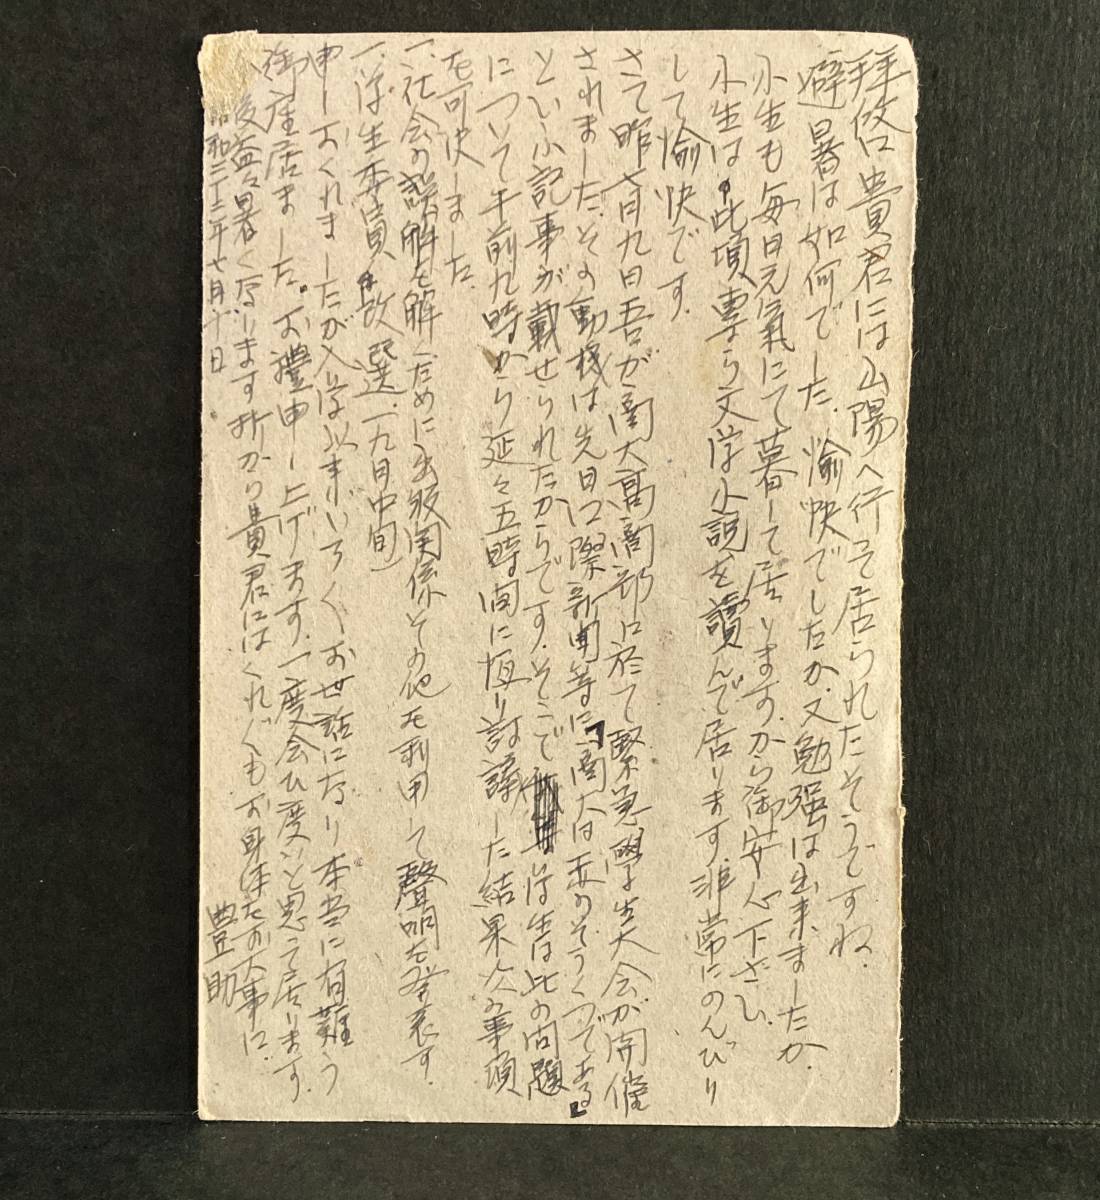 拝啓 貴君には山陽へ行って居られたそうですね.
避暑は如何でした.愉快でしたか.又勉強は出来ましたか.
小生も毎日元氣にて暮して居りますから御安心下さい.
小生は此頃専ら文学小説を讀んで居ります.非常にのんびり
して愉快です.
さて昨七月九日吾が関大高商部に於て緊急学生大会が開催
されました.その動機は先日国際新聞等に「関大は赤のそうくつである」
といふ記事が載せられたからです.そこで学生は此の問題
について午前九時から延々五時間に亘り討議した結果次の事項
を可決しました
一.社会の誤解を解くために出版関係その他を利用して聲明を発表す.
一.学生委員の改選(九月中旬)
申しおくれましたが入学以来いろ〱お世話になり本当に有難う
御座居ました.お禮申し上げます.一度会ひ度いと思って居ります.
今後益々暑くなります折から貴君にはくれ〲もお身体をお大事に.
昭和二十三年七月十日. 豊助